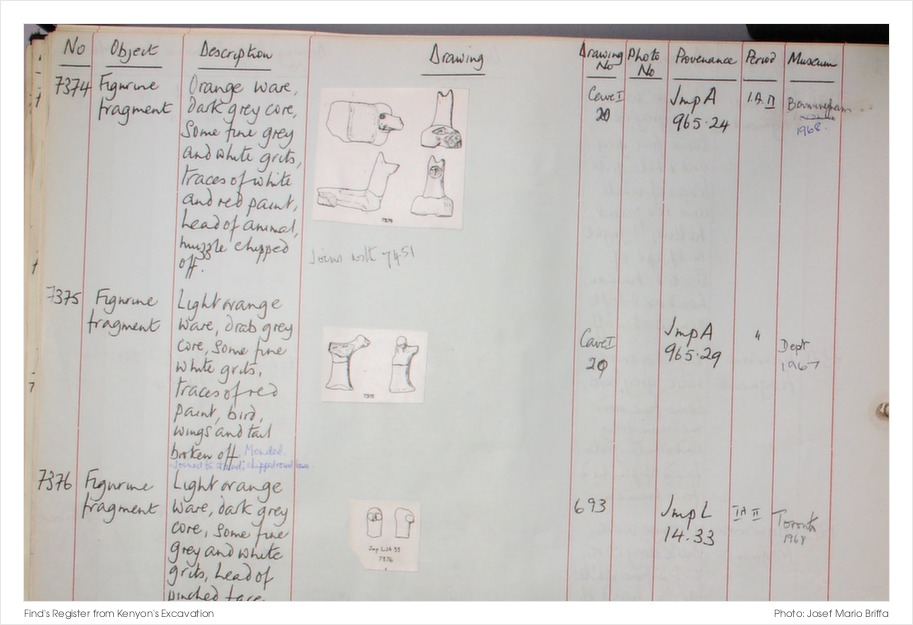 No Object Description Drawing Drawing No Photo No Provenance Period Museum
7374 Figurine fragment
Orange ware,
dark grey core,
some fine grey
and white grits,
traces of white
and red paint,
head of animal,
muzzle chipped
off.
7374
Joins with 7451
Cave I
20
JmpA
965.24
I.A. II
Birmingham
1968
7375 Figurine fragment
Light orange
ware, drab grey
core, some fine
white grits,
traces of red
paint, bird,
wings and tail
broken off. Mended.
Joined to
7375
Cave I
20
JmpA
965.29
"
Dept
1967
7376 Figurine fragment
Light orange
ware, dark grey
core, some fine
grey and white
grits, head of
pinched face,
Jmp L.14.33
7376
693
JmpL
14.33
IA II
Toronto
1968
Find's Register from Kenyon's Excavation
Photo: Josef Mario Briffa